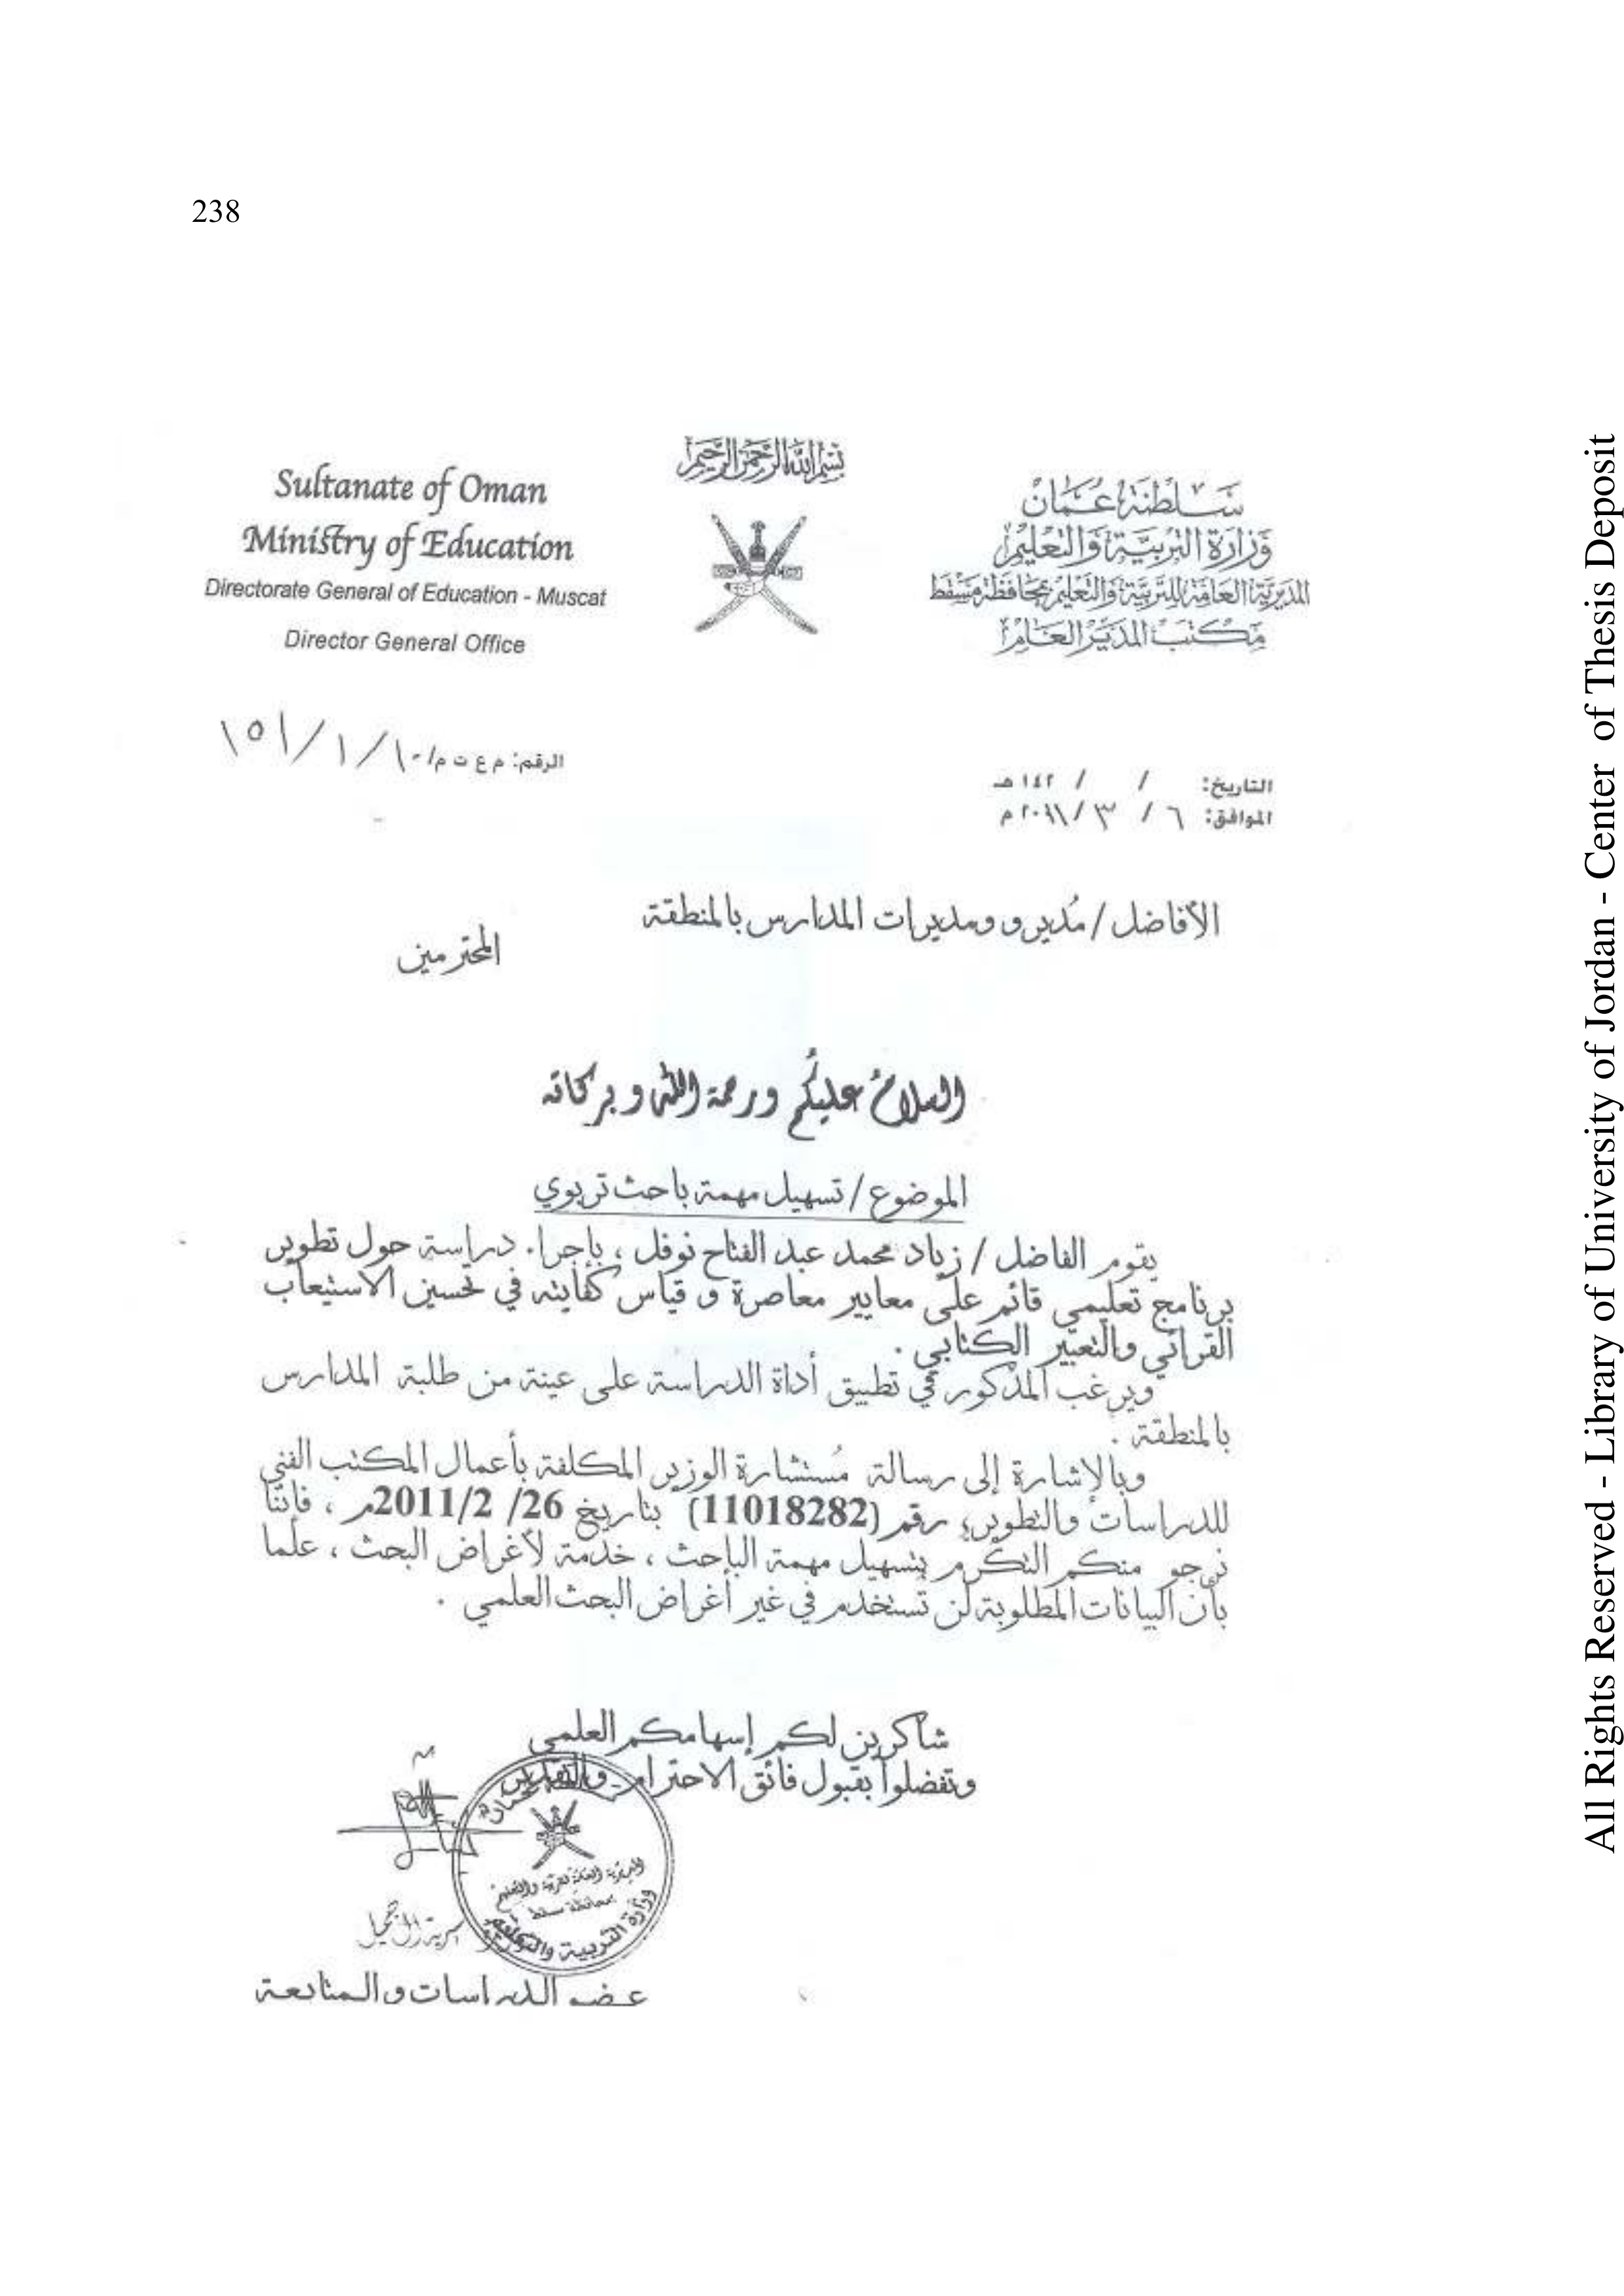 238
بسم الله الرحمن الرحيم
Sultanate of Oman
Ministry of Education
Directorate General of Education - Muscat
Director General Office
سلطنة عمان
وزارة التربية والتعليم
المديرية العامة للتربية والتعليم بمحافظة مسقط
مكتب المدير العام
الرقم: م ع ت م/١٠/١/١٥١
التاريخ: / / ١٤٢ هـ
الموافق: ٦ / ٣ / ٢٠١١ م
الأفاضل / مُديرو ومديرات المدارس بالمنطقة
المحترمين
السلامُ عليكُم ورحمة الله وبركاته
الموضوع / تسهيل مهمة باحث تربوي
يقوم الفاضل / زياد محمد عبد الفتاح نوفل ، بإجراء دراسة حول تطوير
برنامج تعليمي قائم على معايير معاصرة و قياس كفايته في تحسين الاستيعاب
القرائي والتعبير الكتابي .
ويرغب المذكور في تطبيق أداة الدراسة على عينة من طلبة المدارس
بالمنطقة .
وبالإشارة إلى رسالة مُستشارة الوزير المكلفة بأعمال المكتب الفني
للدراسات والتطوير، رقم (11018282) بتاريخ 26/ 2/2011م ، فإننا
نرجو منكم التكرم بتسهيل مهمة الباحث ، خدمة لأغراض البحث ، علما
بأن البيانات المطلوبة لن تستخدم في غير أغراض البحث العلمي .
شاكرين لكم إسهامكم العلمي
وتفضلوا بقبول فائق الاحترام والتقدير
المديرية العامة للتربية والتعليم
بمحافظة مسقط
وزارة التربية والتعليم
عضو الدراسات والمتابعة
All Rights Reserved - Library of University of Jordan - Center of Thesis Deposit